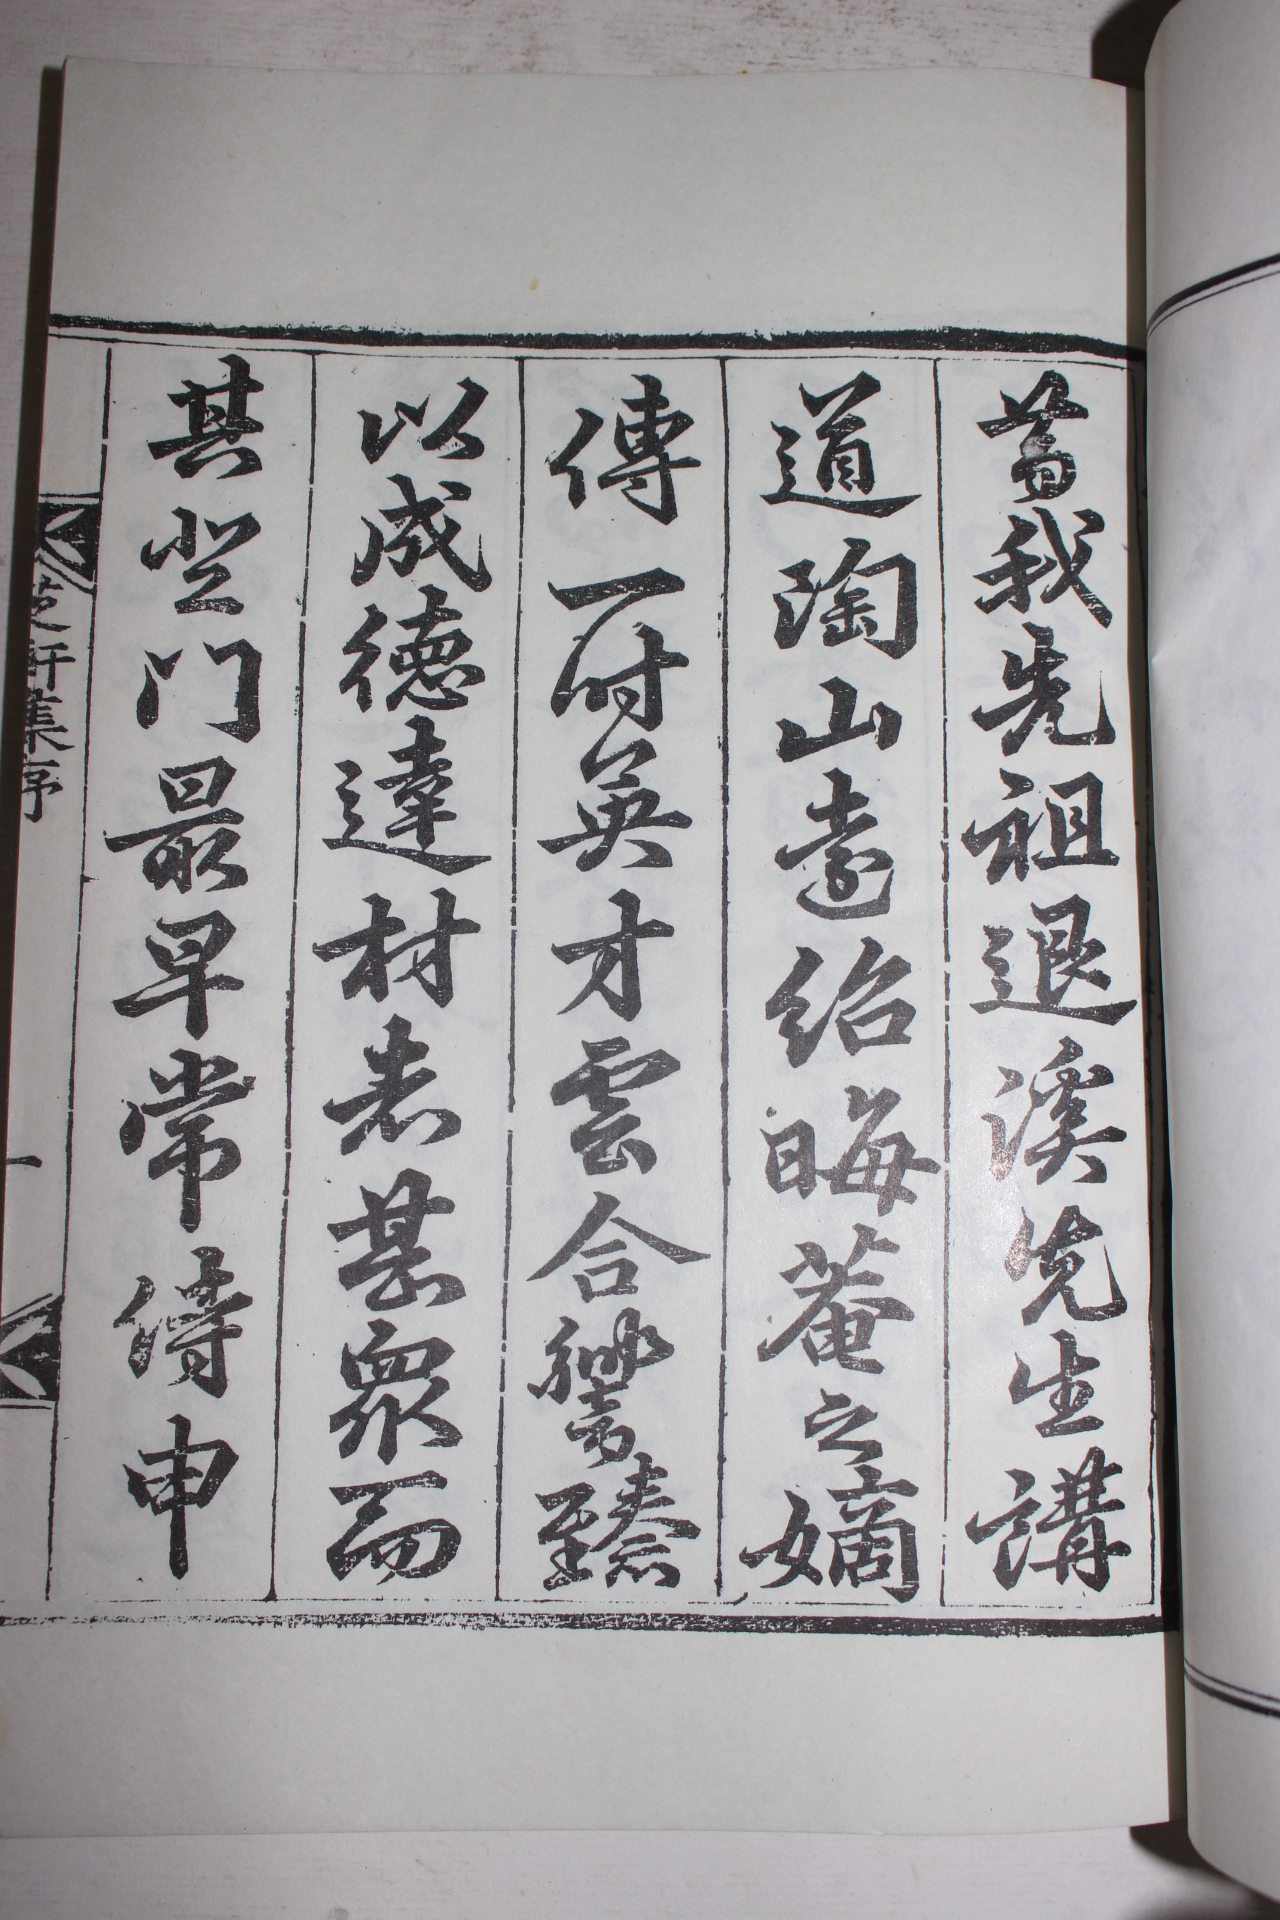 昔我先祖退溪先生講
道陶山遠紹晦菴之嫡
傳一時英才雲合響臻
以成德達材者甚衆而
其登門最早常侍申
軒集序
一